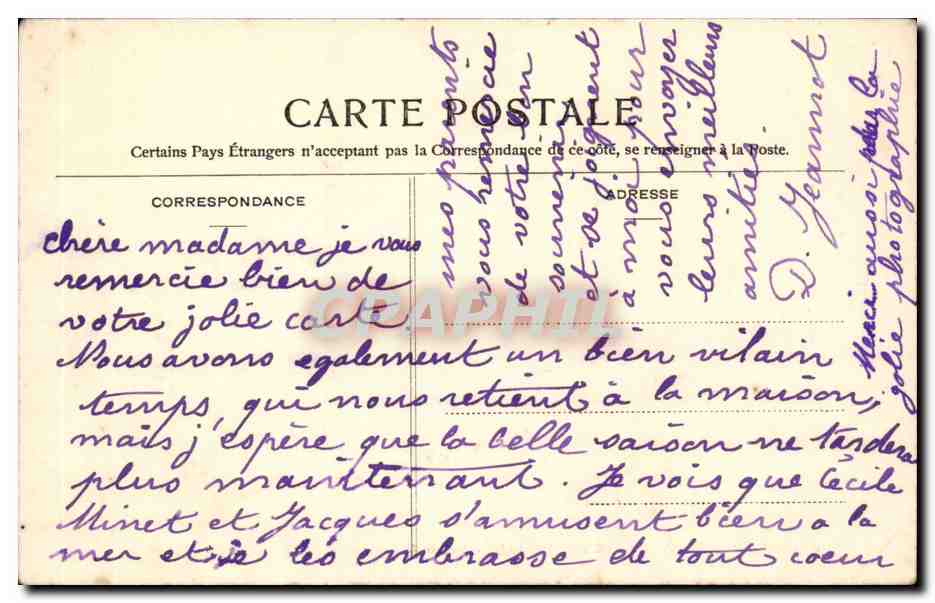 CARTE POSTALE
Certains Pays Étrangers n'acceptant pas la Correspondance de ce côté, se renseigner à la Poste.
CORRESPONDANCE
ADRESSE
chère madame je vous
remercie bien de
votre jolie carte.
Nous avons également un bien vilain
temps, qui nous retient à la maison,
mais j'espère que la belle saison ne tardera
plus maintenant. Je vois que Cécile
Minet et Jacques s'amusent bien a la
mer et je les embrasse de tout coeur
mes parents
vous remercie
de votre bon
souvenir
et se joignent
a moi pour
vous envoyer
leurs meilleurs
amitiés
D. Jeannot
Merci aussi pour la
jolie photographie
CPAPHIL